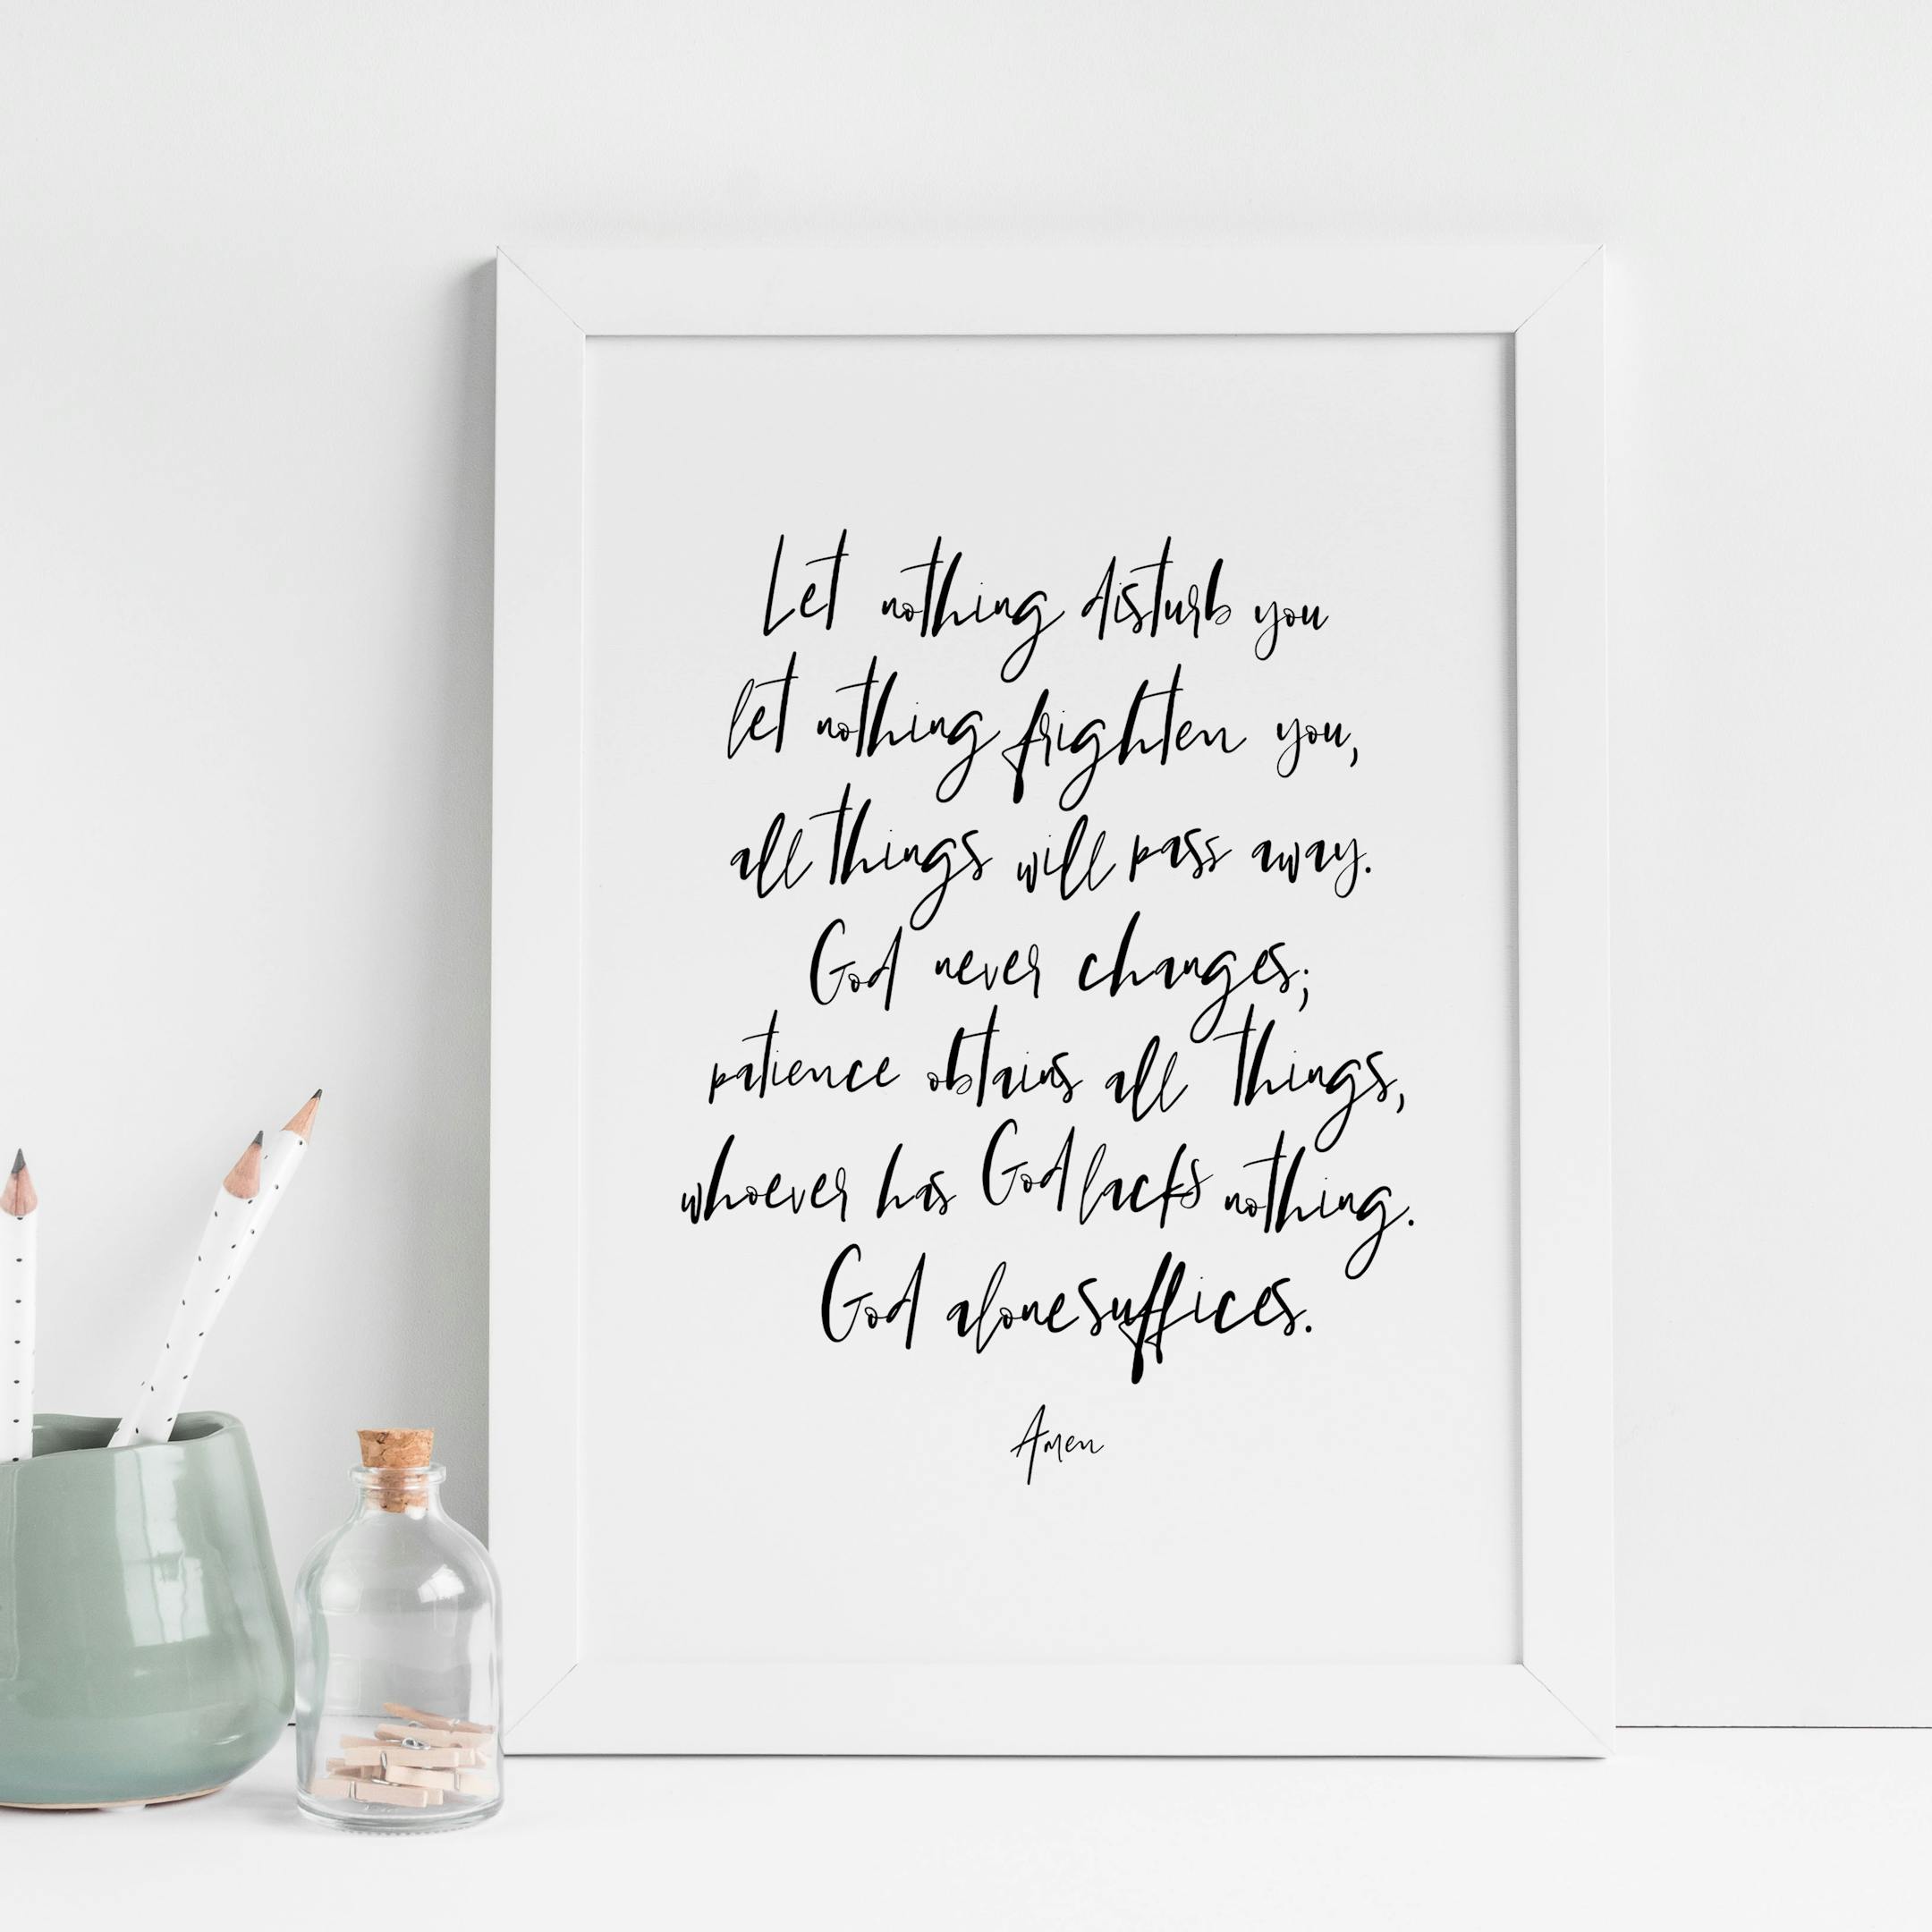 Let nothing disturb you
let nothing frighten you,
all things will pass away.
God never changes;
patience obtains all things,
whoever has God lacks nothing.
God alone suffices.
Amen